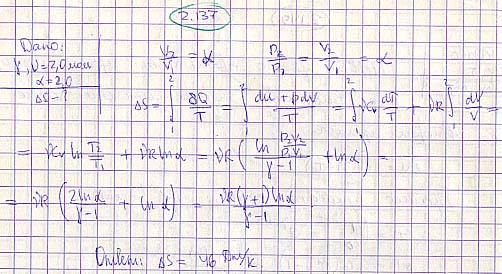 2.137
Дано:
γ, ν = 2,0 моль
α = 2,0
ΔS - ?
V₂/V₁ = α   p₂/p₁ = V₂/V₁ = α
ΔS = ∫₁² δQ/T = ∫₁² (dU + pdV)/T = ∫₁² νCv dT/T + νR ∫₁² dV/V =
= νCv ln T₂/T₁ + νR ln α = νR ( ln (p₂V₂/p₁V₁)/(γ-1) + ln α ) =
= νR ( 2 ln α/(γ-1) + ln α ) = νR(γ+1) ln α/(γ-1)
Ответ: ΔS = 46 Дж/К.